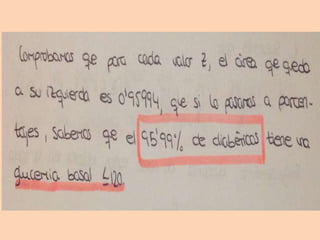 Comprobamos qe para cada valor Z, el área qe qeda
a su izquierda es 0'95994, que si lo pasamos a porcen-
tajes, sabemos qe el 95'99% de diabéticos tiene una
glucemia basal ≤120.